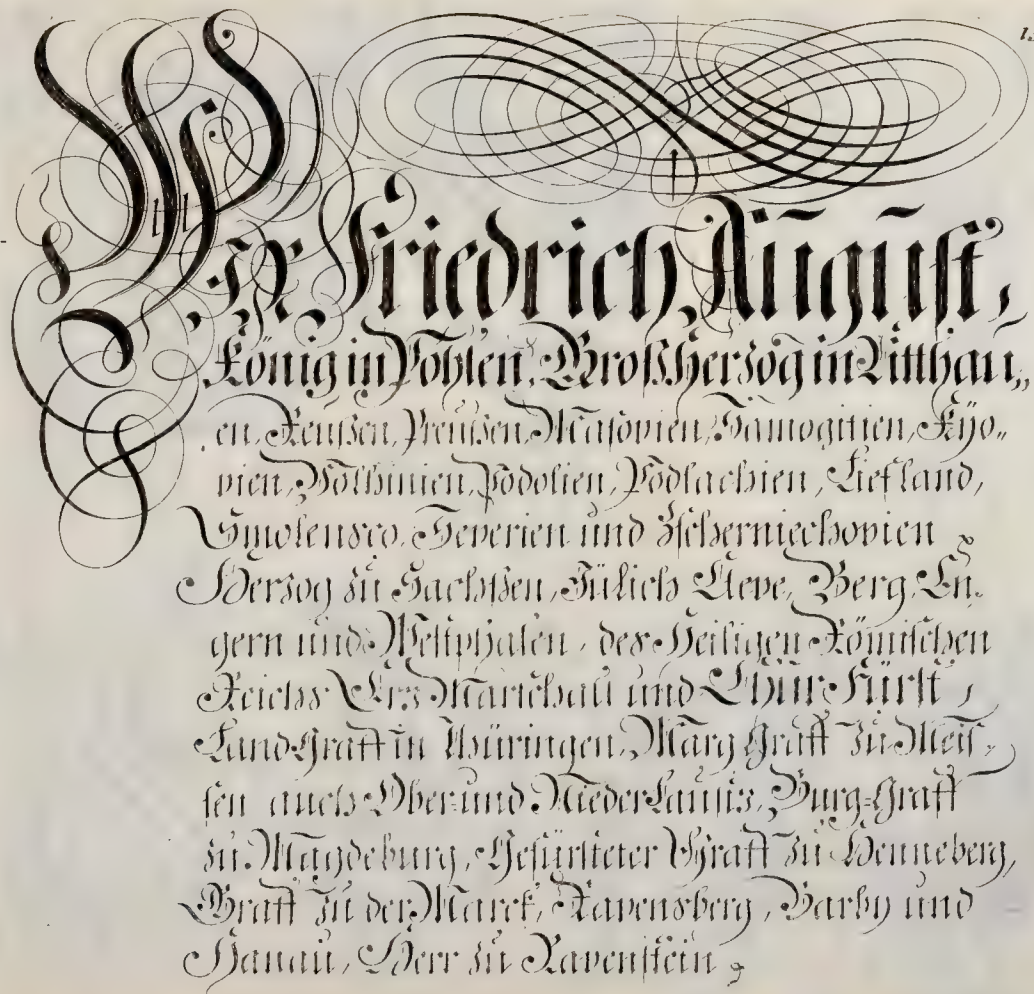 WIR Friedrich August,
König in Pohlen, Groß Herzog in Litthau„
en, Reußen, Preußen, Masovien, Samogitien, Kyo„
vien, Volhinien, Podolien, Podlachien, Liefland,
Smolensco, Severien und Zscherniechovien
Herzog zu Sachßen, Jülich Cleve, Berg, En„
gern und Westphalen, des Heiligen Römischen
Reichs Ertz Marschall und Chur Fürst,
Land Graff in Thüringen, Marg Graff zu Meis„
sen auch Ober- und Nieder Lausitz, Burg-Graff
zu Magdeburg, Gefürsteter Graff zu Henneberg,
Graff zu der Marck, Ravensberg, Barby und
Hanau, Herr zu Ravenstein,